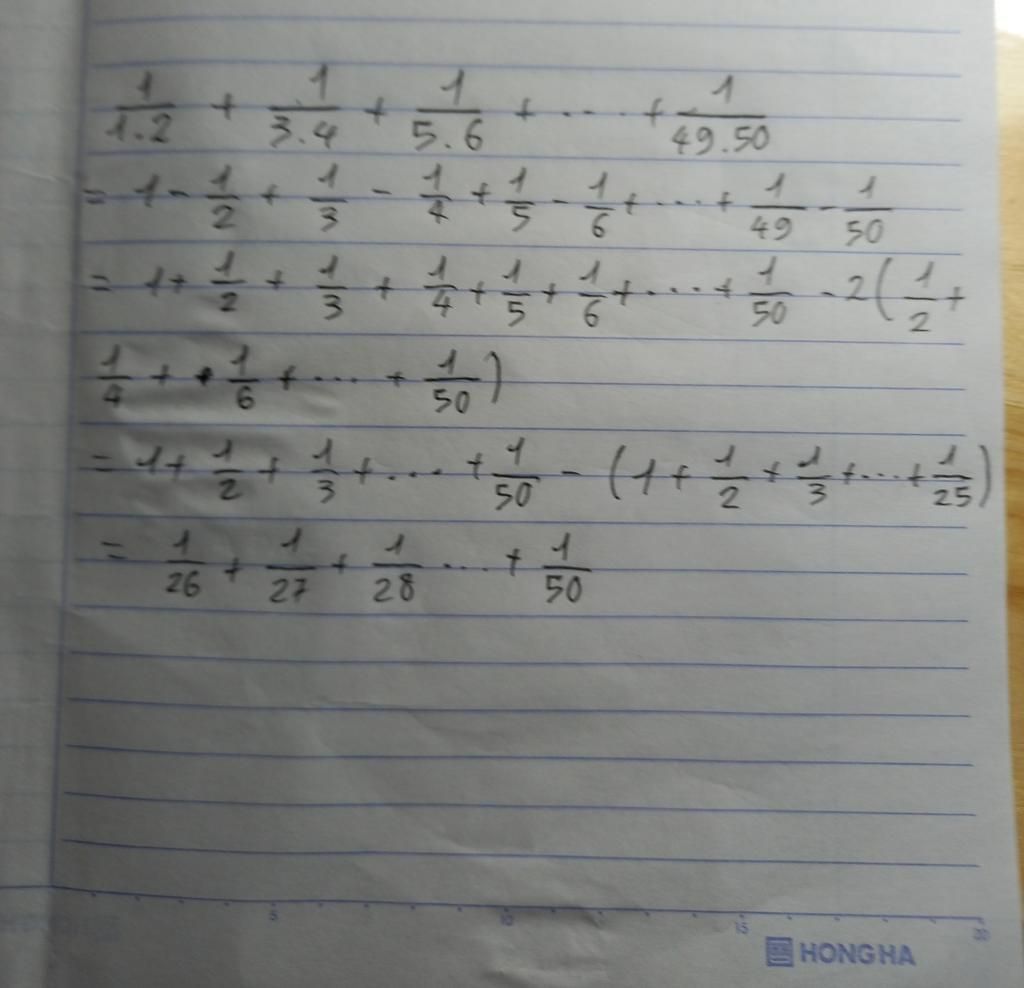 1/1.2 + 1/3.4 + 1/5.6 + .... + 1/49.50
= 1 - 1/2 + 1/3 - 1/4 + 1/5 - 1/6 + ... + 1/49 - 1/50
= 1 + 1/2 + 1/3 + 1/4 + 1/5 + 1/6 + ... + 1/50 - 2(1/2 +
1/4 + + 1/6 + ... + 1/50)
= 1 + 1/2 + 1/3 + ... + 1/50 - (1 + 1/2 + 1/3 + ... + 1/25)
= 1/26 + 1/27 + 1/28 ... + 1/50
5 10 15 20
HONG HA